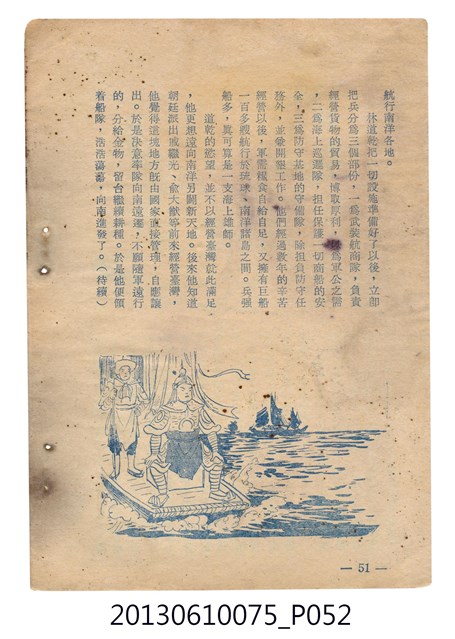 航行南洋各地。
林道乾把一切設施準備好了以後,立卽
把兵分爲三個部份,一爲武裝航商隊,負責
經營貨物的貿易,博取厚利,爲軍公之需
,二爲海上巡邏隊,担任保護一切商船的安
全,三爲防守基地的守備隊,除担負防守任
務外,並從開墾工作。他們經過數年的辛苦
經營以後,軍需糧食自給自足,又擁有巨船
一百多艘航行於琉球、南洋諸島之間。兵强
船多,眞可算是一支海上雄師。
道乾的慾望,並不以經營臺灣就此滿足
,他更想遠向南洋另闢新天地。後來他知道
朝廷派出戚繼光、俞大猷等前來經營臺灣,
他覺得這塊地方旣由國家直接管理,自應讓
出。於是決意率隊向南遠運,不願隨軍遠行
的,分給金物,留台繼續耕種。於是他便領
着船隊,浩浩蕩蕩,向南進發了。(待續)
— 51 —
20130610075_P052